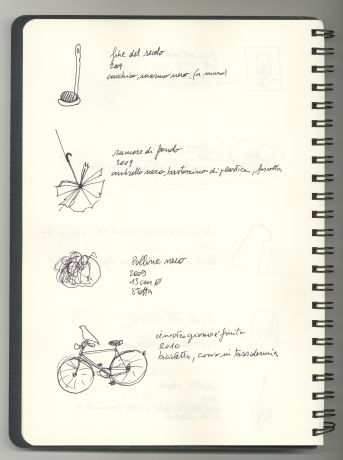 fine del secolo
2009
cucchiaio, marmo nero, (a muro)
rumore di fondo
2009
ombrello nero, bastoncino di plastica,
Polline nero
2009
15 cm Ø
stoffa
giorno è finito
2010
bicicletta, corvo in tassidermia